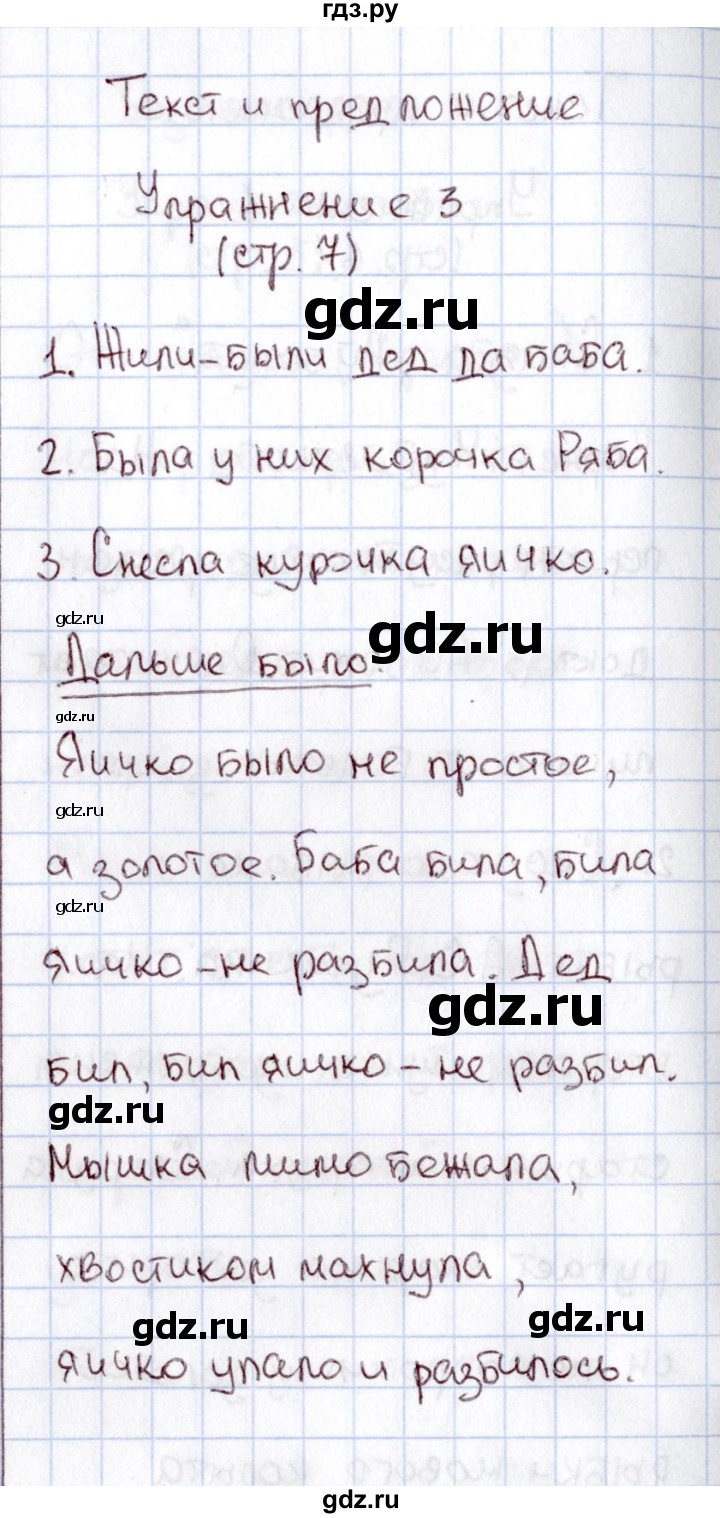 гдз.ру
Текст и предложение
Упражнение 3
(стр. 7)
gdz.ru
1. Жили-были дед да баба.
2. Была у них корочка Ряба.
3. Снесла курочка яичко.
gdz.ru
gdz.ru
Дальше было.
gdz.ru
Яичко было не простое,
gdz.ru
а золотое. Баба била, била
gdz.ru
яичко - не разбила. Дед
gdz.ru
бил, бил яичко - не разбил.
gdz.ru
Мышка мимо бежала,
хвостиком махнула,
gdz.ru
gdz.ru
яичко упало и разбилось.
gdz.ru